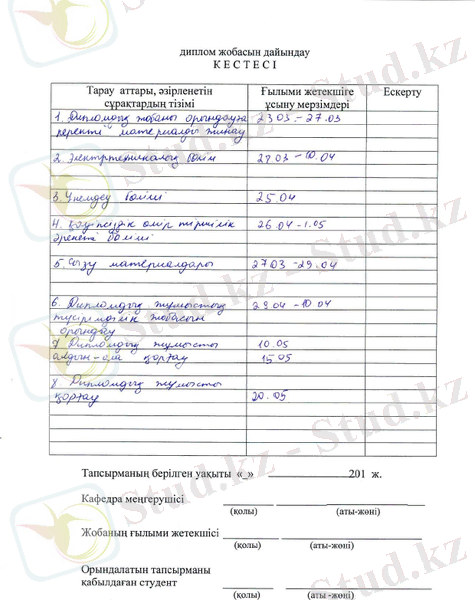 диплом жобасын дайындау
К Е С Т Е С І
Тарау аттары, әзірленетін сұрақтардың тізімі
Ғылыми жетекшіге ұсыну мерзімдері
Ескерту
1. Дипломдық жобаны орындауға
материалды жинау
23 03. - 27.03
2. Электртехникалық бөлім
27 03 - 10.04
3. Үнемдеу бөлімі
25.04
4. Қауіпсіздік өмір тіршілік
бөлімі
26.04 - 1.05
5. Сызу материалдары
27 03 - 29.04
6. Дипломдық жұмыстың
жобасын
орындау
29 04 - 10 04
7 Дипломдық жұмысты
алдын-ала қорғау
10.05
15 05
8 Дипломдық жұмысты
қорғау
20. 05
Тапсырманың берілген уақыты «_» ________________201 ж.
Кафедра меңгерушісі
(қолы) (аты-жөні)
Жобаның ғылыми жетекшісі
(қолы) (аты-жөні)
Орындалатын тапсырманы
қабылдаған студент
(қолы) (аты -жөні)
Stud.kz
Stud.kz
Stud.kz
Stud.kz
Stud.kz